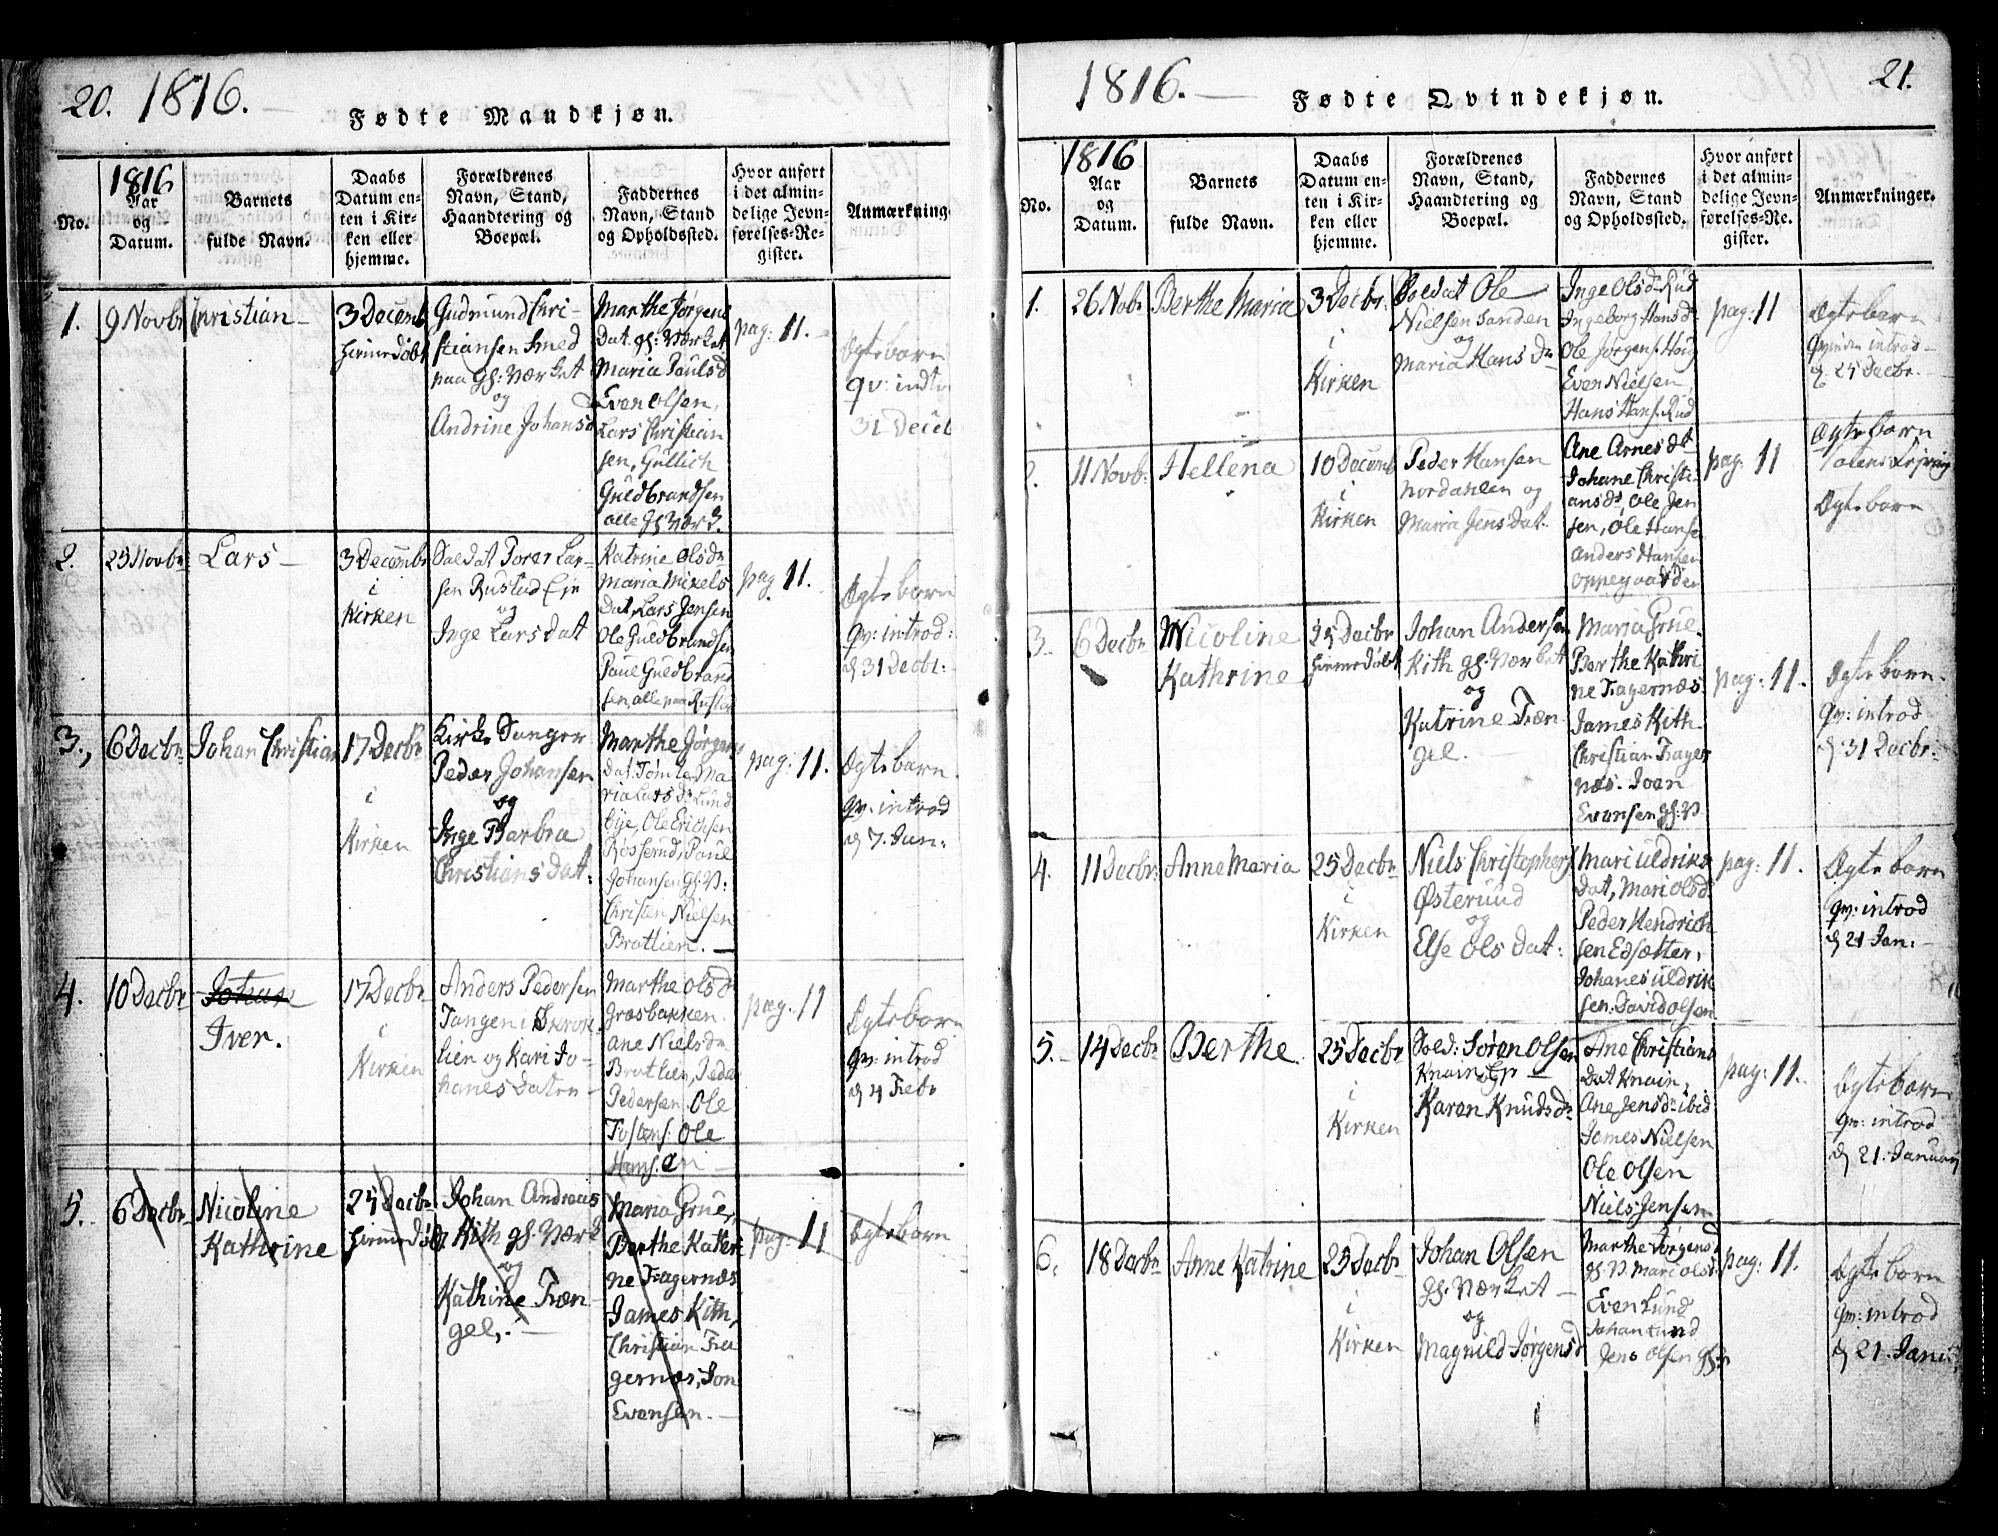 20. 1816.
Fødte Mandkjøn.
No.
1816
Aar
og
Datum.
Barnets
fulde Navn.
Daabs
Datum en-
ten i Kir-
ken eller
hjemme.
Forældrenes
Navn, Stand,
Haandtering og
Boepæl.
Faddernes
Navn, Stand
og Opholdssted.
Hvor anført
i det almin-
delige Jevn-
førelses-Re-
gister.
Anmærkning
1.
9 Novbr
Christian
3 Decemb
hiemedøbt
Gudmund Chri-
stiansen Smed
paa gl: Værket
og
Andrine Johansd
Marthe Jørgens
Dat. gl: Værket
Maria Paulsd
Even Olsen,
Lars Christian
sen, Gullich
Guldbrandsen
alle gl Værk.
pag: 11.
Ægtebarn
qv: indtr
31 Deceb
2.
25 Novbr
Lars
3 Decembr
i
Kirken
Soldat Porer Lar-
sen Rustad Eje
og
Inge Larsdat
Katrine Olsdr
Maria Mikels
Dat, Lars Jensen
Ole Guldbrandsen
Paul Guldbrand
sen, alle paa Rustad
pag 11.
Ægtebarn
qv: introd:
d 31 Decbr:
3.
6 Decbr
Johan Christian
17 Decbr
i
Kirken
Kirke Sanger
Peder Johansen
og
Inge Barbra
Christians Dat:
Marthe Jørgens
Dat. Tømte, Ma
ria Lars Dr Lund
bye, Ole Erichsen
Rosserud, Paul
Johansen gl: V:
Christen Nielsen
Bratlien.
pag: 11.
Ægtebarn.
qv: introd
d 7. Jan:
4.
10 Decbr
Johan
Iver.
17 Decbr
i
Kirken
Anders Pedersen
Tangen i Skrok
lien og Kari Jo-
hanes Daten
Marthe Olsd
Græsbakken.
ane Nielsdr
Bratlien, Peder
Pedersen Ole
Tostens: Ole
Hans: en
pag: 11
Ægtebarn
qv: introd
d 4 Febr
5.
6 Decbr
Nicoline
Kathrine
25 Decbr
hiemedøbt
Johan Andreas
Kith gl: Værk
og
Kathine Træn-
gel,
Maria Grue,
Berthe Kater
ne Fragernæs
James Kith,
Christian Fra
gernæs, Jon
Evensen.
pag: 11
Ægtebarn
1816.
Fødte Qvindekjøn.
21.
No.
1816
Aar
og
Datum.
Barnets
fulde Navn.
Daabs
Datum en-
ten i Kir-
ken eller
hjemme.
Forældrenes
Navn, Stand,
Haandtering og
Boepæl.
Faddernes
Navn, Stand
og Opholdssted.
Hvor anført
i det almin-
delige Jevn-
førelses-Re-
gister.
Anmærkninger.
1.
26 Nobr
Berthe Maria
3 Decbr
i
Kirken
Soldat Ole
Nielsen Sanden
og
Maria Hans Dr
Inge Olsdr Rud
Ingeborg Hansd
Ole Jørgens: Høig
Even Nielsen,
Hans Hans: Rud
pag: 11
Ægtebarn
Qvinden introd
d. 25 Decbr.
2.
11 Novb:
Hellena
10 Decemb
i
Kirken
Peder Hansen
Nordahlen og
Maria Jens dat.
Ane Arnes dt
Johane Christi-
ansdt, Ole Jen
sen, Ole Hansen
Anders Hansen
Oppegaarden
pag: 11
Ægtebarn
Ægtebarn
3.
6 Decbr
Nicoline
Kathrine
25 Decbr
hiemedøbt
Johan Andersen
Kith gl: Værket
og
Katrine Træn
gel.
Maria Grue.
Berthe Kathri
ne Fragernæs
James Kith
Christian Frager
næs. Joen
Evensen gl: V
pag: 11.
Ægtebarn.
qv: introd
d 31 Decbr.
4.
11 Decbr:
Anne Maria
25 Decbr
i
Kirken
Niels Christophers
Østerud
og
Else Ols Dat:
Mari Uldriks
Dat, Mari Olsd
Peder Hendrich
sen Edsætter,
Johanes Uldrik
sen. David Olsen
pag: 11.
Ægtebarn
qv: introd
d 21 Jan.
5.
14 Decbr
Berthe
25 Decbr
i
Kirken
Sold: Søren Olsen
Knain Ep
og
Karen Knudsdr
Ane Christians
Dat Knain,
Ane Jensdr ibid
James Nielsen
Ole Olsen
Niels Jensen
pag: 11.
Ægtebarn
qv: introd
d 21. Januar
6.
18 Decbr
Anne Katrine
25 Decbr
i
Kirken
Johan Olsen
gl: Værket
og
Magnild Jørgensd
Marthe Jørgensd
gl: V. Mari Olsd.
Even Lund
Johan Lund
Jens Olsen gl:
pag: 11.
Ægtebarn
qv: introd
d 21. Janu